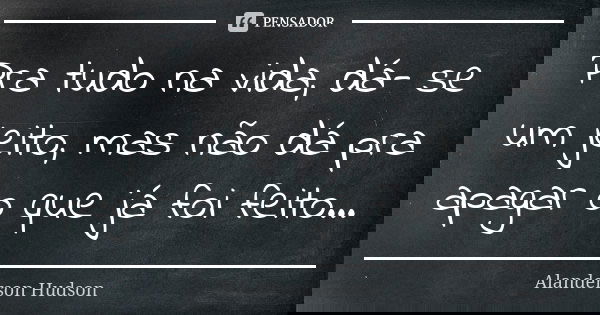 PENSADOR
Pra tudo na vida, dá- se
um jeito, mas não dá pra
apagar o que já foi feito...
Alanderson Hudson